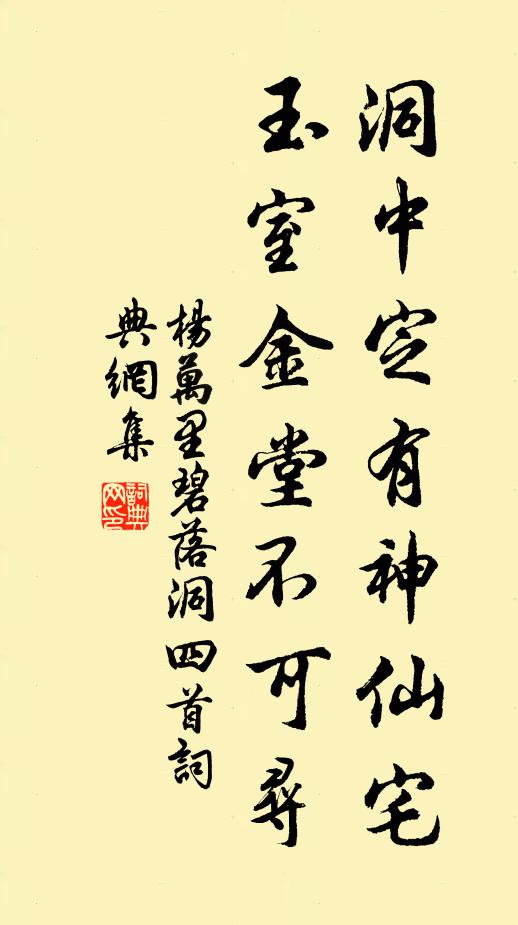 洞中定有神仙宅
玉室金堂不可尋
楊萬里碧落洞四首詞
典網集
詞典
网印